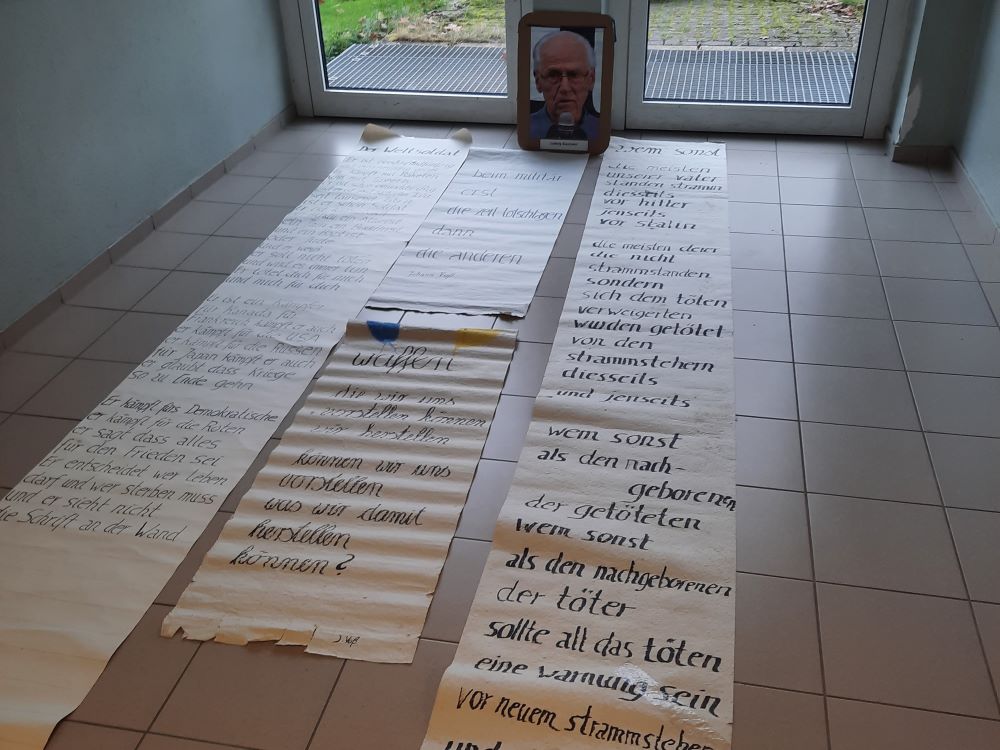 Der Weltsoldat
er soll nicht töten
und er weiß er wird es immer tun
er tötet dich für mich
und mich für dich
Er ist ein Kämpfer
für Kanada für
Frankreich kämpft er auch
er kämpft für die USA
er kämpft für die Russen
für Japan kämpft er auch
er glaubt dass Kriege
so zu Ende gehn
Er kämpft fürs Demokratische
er kämpft für die Roten
er sagt dass alles
für den Frieden sei
Er entscheidet wer leben
darf und wer sterben muss
und er sieht nicht
die Schrift an der Wand
beim militär
erst
die zeit totschlagen
dann
die anderen
waffen
die wir uns
vorstellen können
wir herstellen
können wir uns
vorstellen
was wir damit
herstellen
können?
wem sonst
die meisten
unserer väter
standen stramm
diesseits
vor hitler
jenseits
vor stalin
die meisten derer
die nicht
strammstanden
sondern
sich dem töten
verweigerten
wurden getötet
von den
strammstehern
diesseits
und jenseits
wem sonst
als den nach-
geborenen
der getöteten
wem sonst
als den nachgeborenen
der töter
sollte all das töten
eine warnung sein
vor neuem strammstehen
und